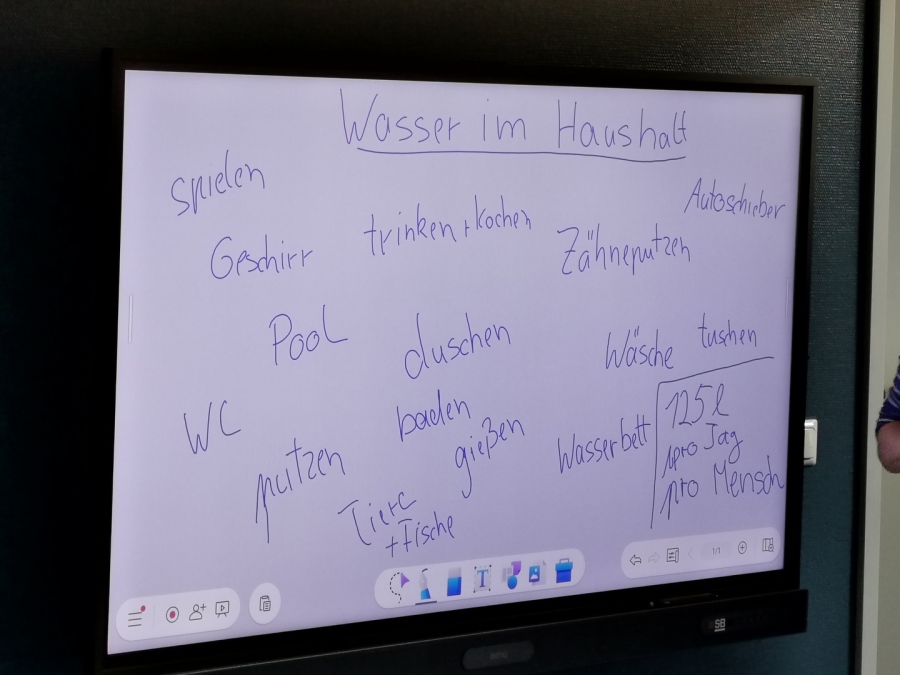 Wasser im Haushalt
spielen
Autoschieber
Geschirr
trinken + Kochen
Zähneputzen
Pool
duschen
Wäsche
tuschen
WC
baden
putzen
gießen
Wasserbett
125 l
pro Tag
pro Mensch
Tiere
+ Fische
1/1
SB